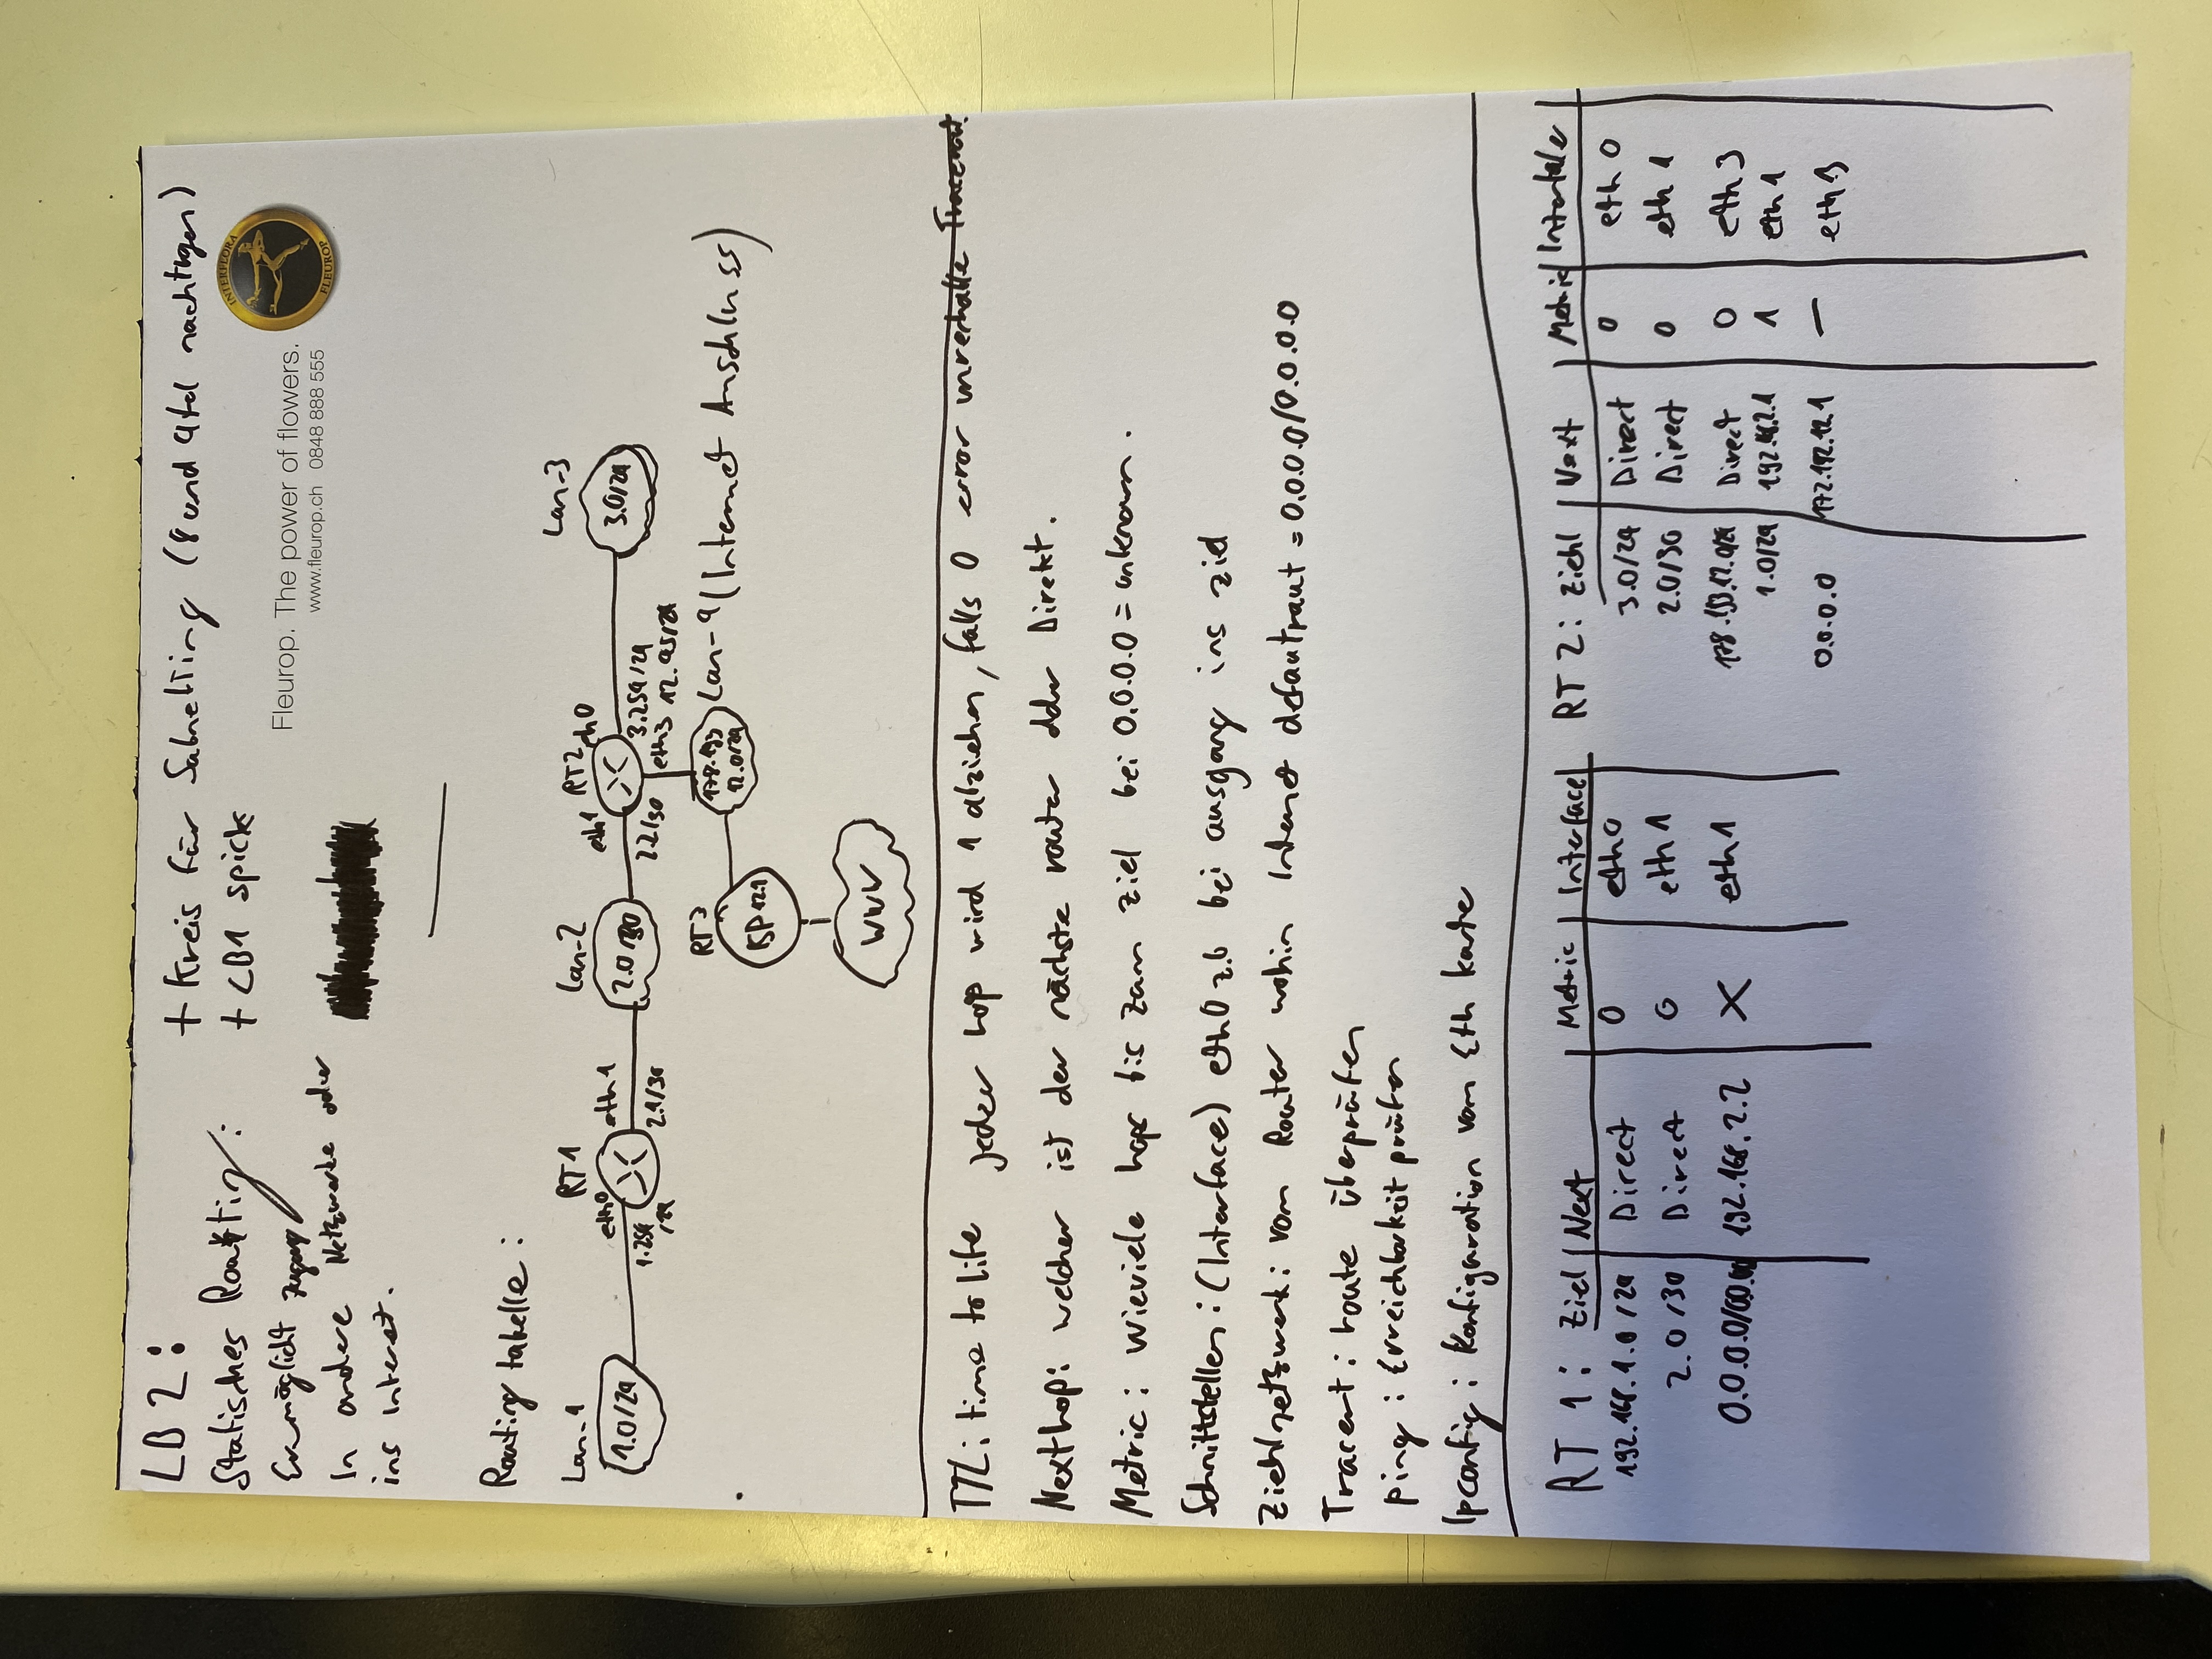 LB2:
+ Kreis für Subnetting (8 und 4tel nachtragen)
+ LB1 spick
Statisches Routing:
Ermöglicht zugang
in andere Netzwerke oder
ins Internet.
Fleurop. The power of flowers.
www.fleurop.ch 0848 888 555
INTERFLORA
FLEUROP
Routing tabelle:
Lan-1
1.0/24
RT1
eth0
1.254
/24
eth1
2.1/30
Lan-2
2.0/30
RT2
eth1
2.2/30
eth0
3.254/24
eth3
12.45/24
Lan-3
3.0/24
12.0/24
Lan-4 (Internet Anschluss)
RT3
ISP 12.1
WWW
TTL: time to life jeder hop wird 1 abziehen, falls 0 error
Nexthop: welcher ist der nächste router oder Direkt.
Metric: wieviele hops bis zum ziel bei 0.0.0.0 = unknown.
Schnittstellen: (Interface) eth0 z.b bei ausgang ins ziel
Ziehlnetzwerk: vom Router wohin Internet defautraut = 0.0.0.0/0.0.0.0
Tracert: route überprüfen
ping: Erreichbarkeit prüfen
Ipconfig: Konfiguration vom Eth karte
RT 1:
Ziel Next Metric Interface
192.168.1.0/24 Direct 0 eth0
2.0/30 Direct 0 eth1
0.0.0.0/ 192.168.2.2 X eth1
RT 2:
Ziehl Next Metric
3.0/24 Direct 0 eth0
2.0/30 Direct 0 eth1
Direct 0 eth3
1.0/24 1 eth1
0.0.0.0 — eth3